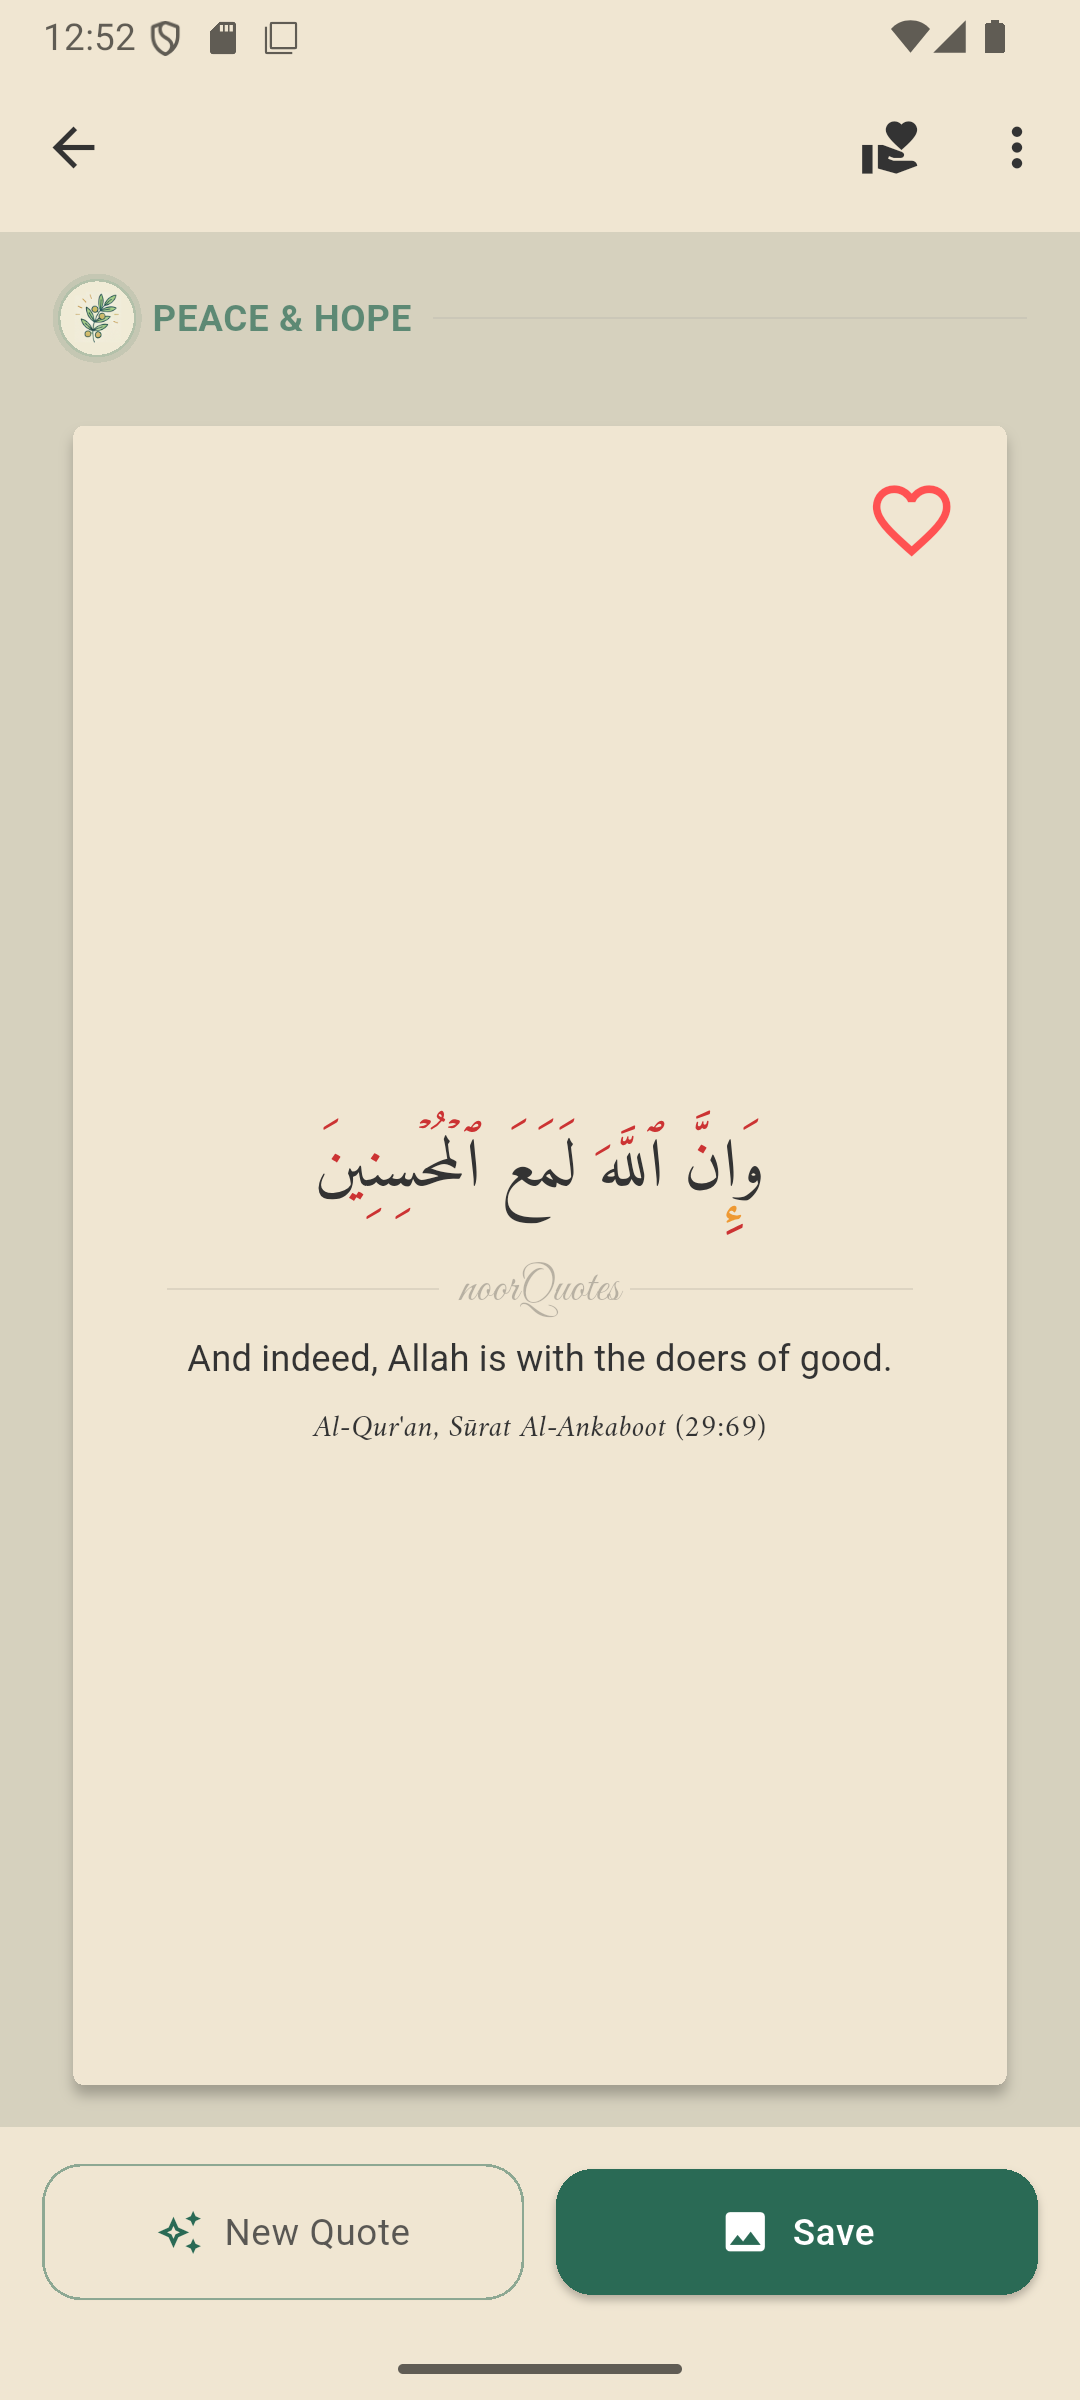 12:52
PEACE & HOPE
وَإِنَّ ٱللَّهَ لَمَعَ ٱلْمُحْسِنِينَ
noorQuotes
And indeed, Allah is with the doers of good.
Al-Qur'an, Sūrat Al-Ankaboot (29:69)
New Quote
Save